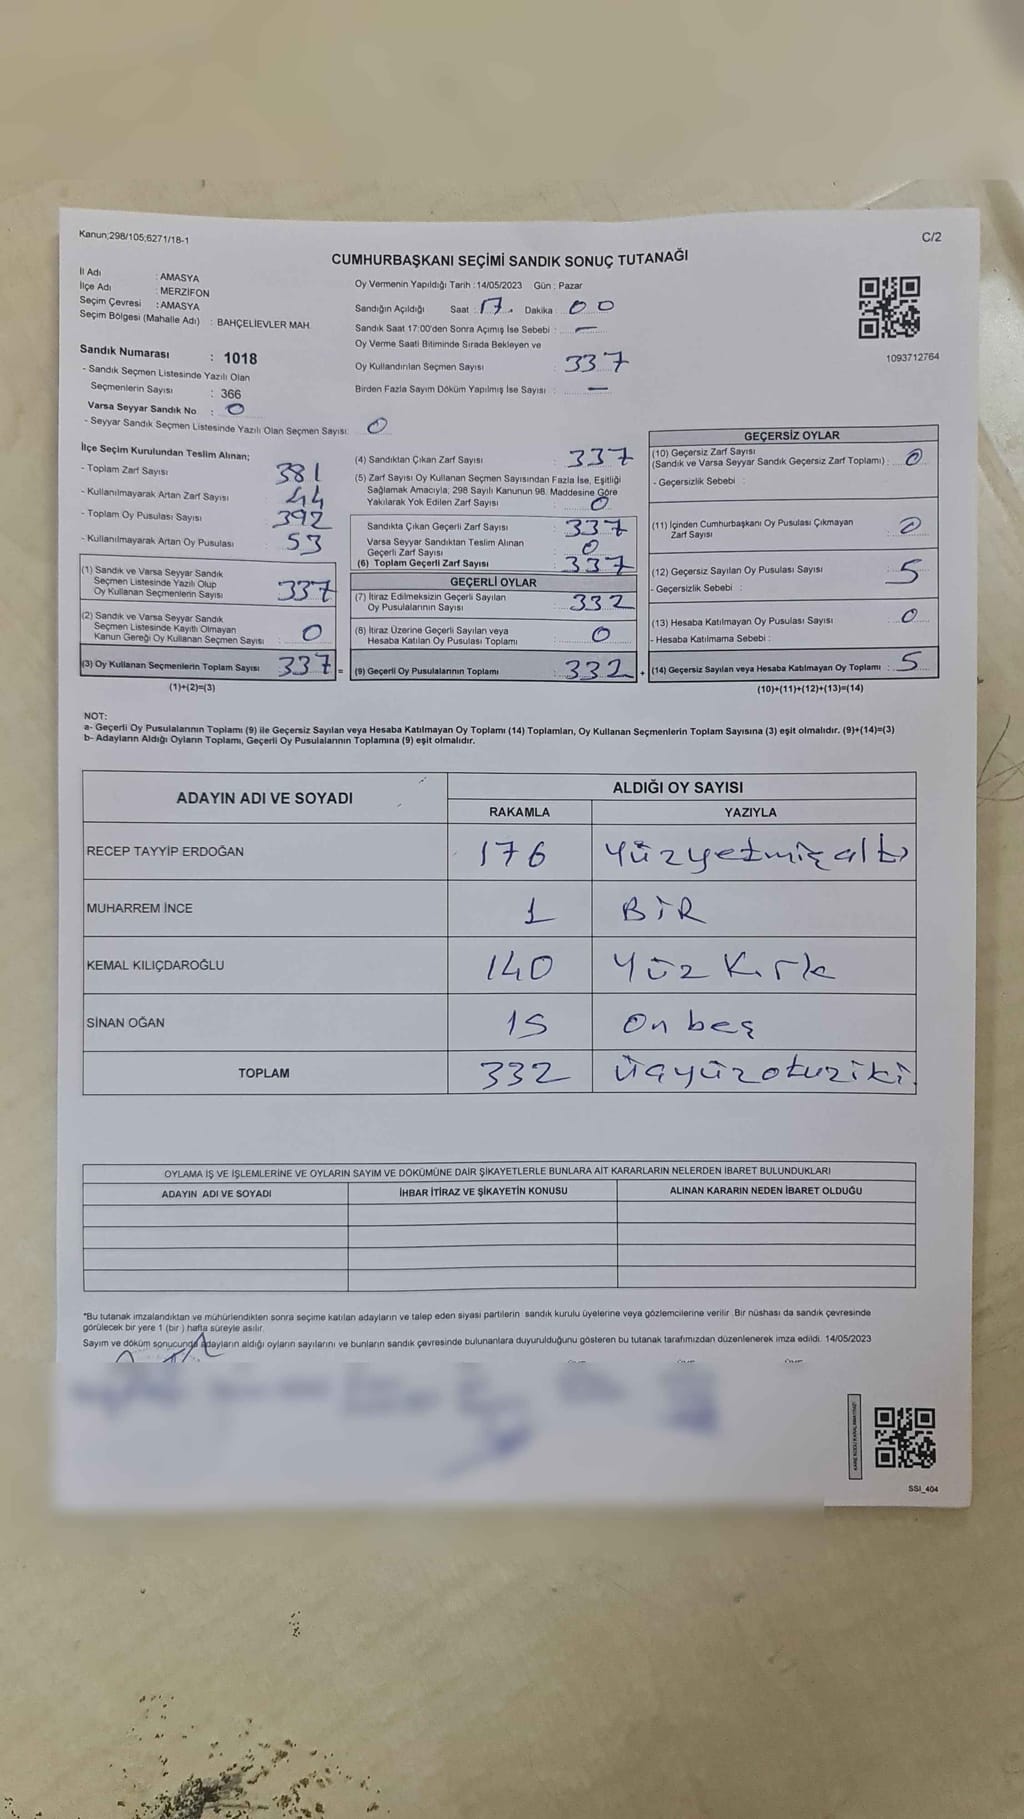 Kanun;298/105;6271/18-1
C/2
CUMHURBAŞKANI SEÇİMİ SANDIK SONUÇ TUTANAĞI
İl Adı : AMASYA
İlçe Adı : MERZİFON
Seçim Çevresi : AMASYA
Seçim Bölgesi (Mahalle Adı) : BAHÇELİEVLER MAH.
Sandık Numarası : 1018
- Sandık Seçmen Listesinde Yazılı Olan
Seçmenlerin Sayısı : 366
Varsa Seyyar Sandık No : 0
- Seyyar Sandık Seçmen Listesinde Yazılı Olan Seçmen Sayısı: 0
Oy Vermenin Yapıldığı Tarih : 14/05/2023 Gün : Pazar
Sandığın Açıldığı Saat : 17. Dakika : 00
Sandık Saat 17:00'den Sonra Açımış İse Sebebi : —
Oy Verme Saati Bitiminde Sırada Bekleyen ve
Oy Kullandırılan Seçmen Sayısı : 337
Birden Fazla Sayım Döküm Yapılmış İse Sayısı : —
1093712764
İlçe Seçim Kurulundan Teslim Alınan;
- Toplam Zarf Sayısı 381
- Kullanılmayarak Artan Zarf Sayısı 44
- Toplam Oy Pusulası Sayısı 392
- Kullanılmayarak Artan Oy Pusulası 53
(1) Sandık ve Varsa Seyyar Sandık
Seçmen Listesinde Yazılı Olup
Oy Kullanan Seçmenlerin Sayısı : 337
(2) Sandık ve Varsa Seyyar Sandık
Seçmen Listesinde Kayıtlı Olmayan
Kanun Gereği Oy Kullanan Seçmen Sayısı : 0
(3) Oy Kullanan Seçmenlerin Toplam Sayısı : 337 =
(1)+(2)=(3)
(4) Sandıktan Çıkan Zarf Sayısı : 337
(5) Zarf Sayısı Oy Kullanan Seçmen Sayısından Fazla İse, Eşitliği
Sağlamak Amacıyla, 298 Sayılı Kanunun 98. Maddesine Göre
Yakılarak Yok Edilen Zarf Sayısı : 0
Sandıkta Çıkan Geçerli Zarf Sayısı : 337
Varsa Seyyar Sandıktan Teslim Alınan
Geçerli Zarf Sayısı : 0
(6) Toplam Geçerli Zarf Sayısı : 337
GEÇERLİ OYLAR
(7) İtiraz Edilmeksizin Geçerli Sayılan
Oy Pusulalarının Sayısı : 332
(8) İtiraz Üzerine Geçerli Sayılan veya
Hesaba Katılan Oy Pusulası Toplamı : 0
(9) Geçerli Oy Pusulalarının Toplamı : 332 +
GEÇERSİZ OYLAR
(10) Geçersiz Zarf Sayısı
(Sandık ve Varsa Seyyar Sandık Geçersiz Zarf Toplamı) : 0
- Geçersizlik Sebebi :
(11) İçinden Cumhurbaşkanı Oy Pusulası Çıkmayan
Zarf Sayısı : 0
(12) Geçersiz Sayılan Oy Pusulası Sayısı : 5
- Geçersizlik Sebebi :
(13) Hesaba Katılmayan Oy Pusulası Sayısı : 0
- Hesaba Katılmama Sebebi :
(14) Geçersiz Sayılan veya Hesaba Katılmayan Oy Toplamı : 5
(10)+(11)+(12)+(13)=(14)
NOT:
a- Geçerli Oy Pusulalarının Toplamı (9) ile Geçersiz Sayılan veya Hesaba Katılmayan Oy Toplamı (14) Toplamları, Oy Kullanan Seçmenlerin Toplam Sayısına (3) eşit olmalıdır. (9)+(14)=(3)
b- Adayların Aldığı Oyların Toplamı, Geçerli Oy Pusulalarının Toplamına (9) eşit olmalıdır.
ADAYIN ADI VE SOYADI ALDIĞI OY SAYISI
RAKAMLA YAZIYLA
RECEP TAYYİP ERDOĞAN 176 Yüzyetmişaltı
MUHARREM İNCE 1 BİR
KEMAL KILIÇDAROĞLU 140 Yüz Kırk
SİNAN OĞAN 15 On beş
TOPLAM 332 Üçyüzotuziki
OYLAMA İŞ VE İŞLEMLERİNE VE OYLARIN SAYIM VE DÖKÜMÜNE DAİR ŞİKAYETLERLE BUNLARA AİT KARARLARIN NELERDEN İBARET BULUNDUKLARI
ADAYIN ADI VE SOYADI İHBAR İTİRAZ VE ŞİKAYETİN KONUSU ALINAN KARARIN NEDEN İBARET OLDUĞU
*Bu tutanak imzalandıktan ve mühürlendikten sonra seçime katılan adayların ve talep eden siyasi partilerin sandık kurulu üyelerine veya gözlemcilerine verilir. Bir nüshası da sandık çevresinde
görülecek bir yere 1 (bir) hafta süreyle asılır.
Sayım ve döküm sonucunda adayların aldığı oyların sayılarını ve bunların sandık çevresinde bulunanlara duyurulduğunu gösteren bu tutanak tarafımızdan düzenlenerek imza edildi. 14/05/2023
SSI_404